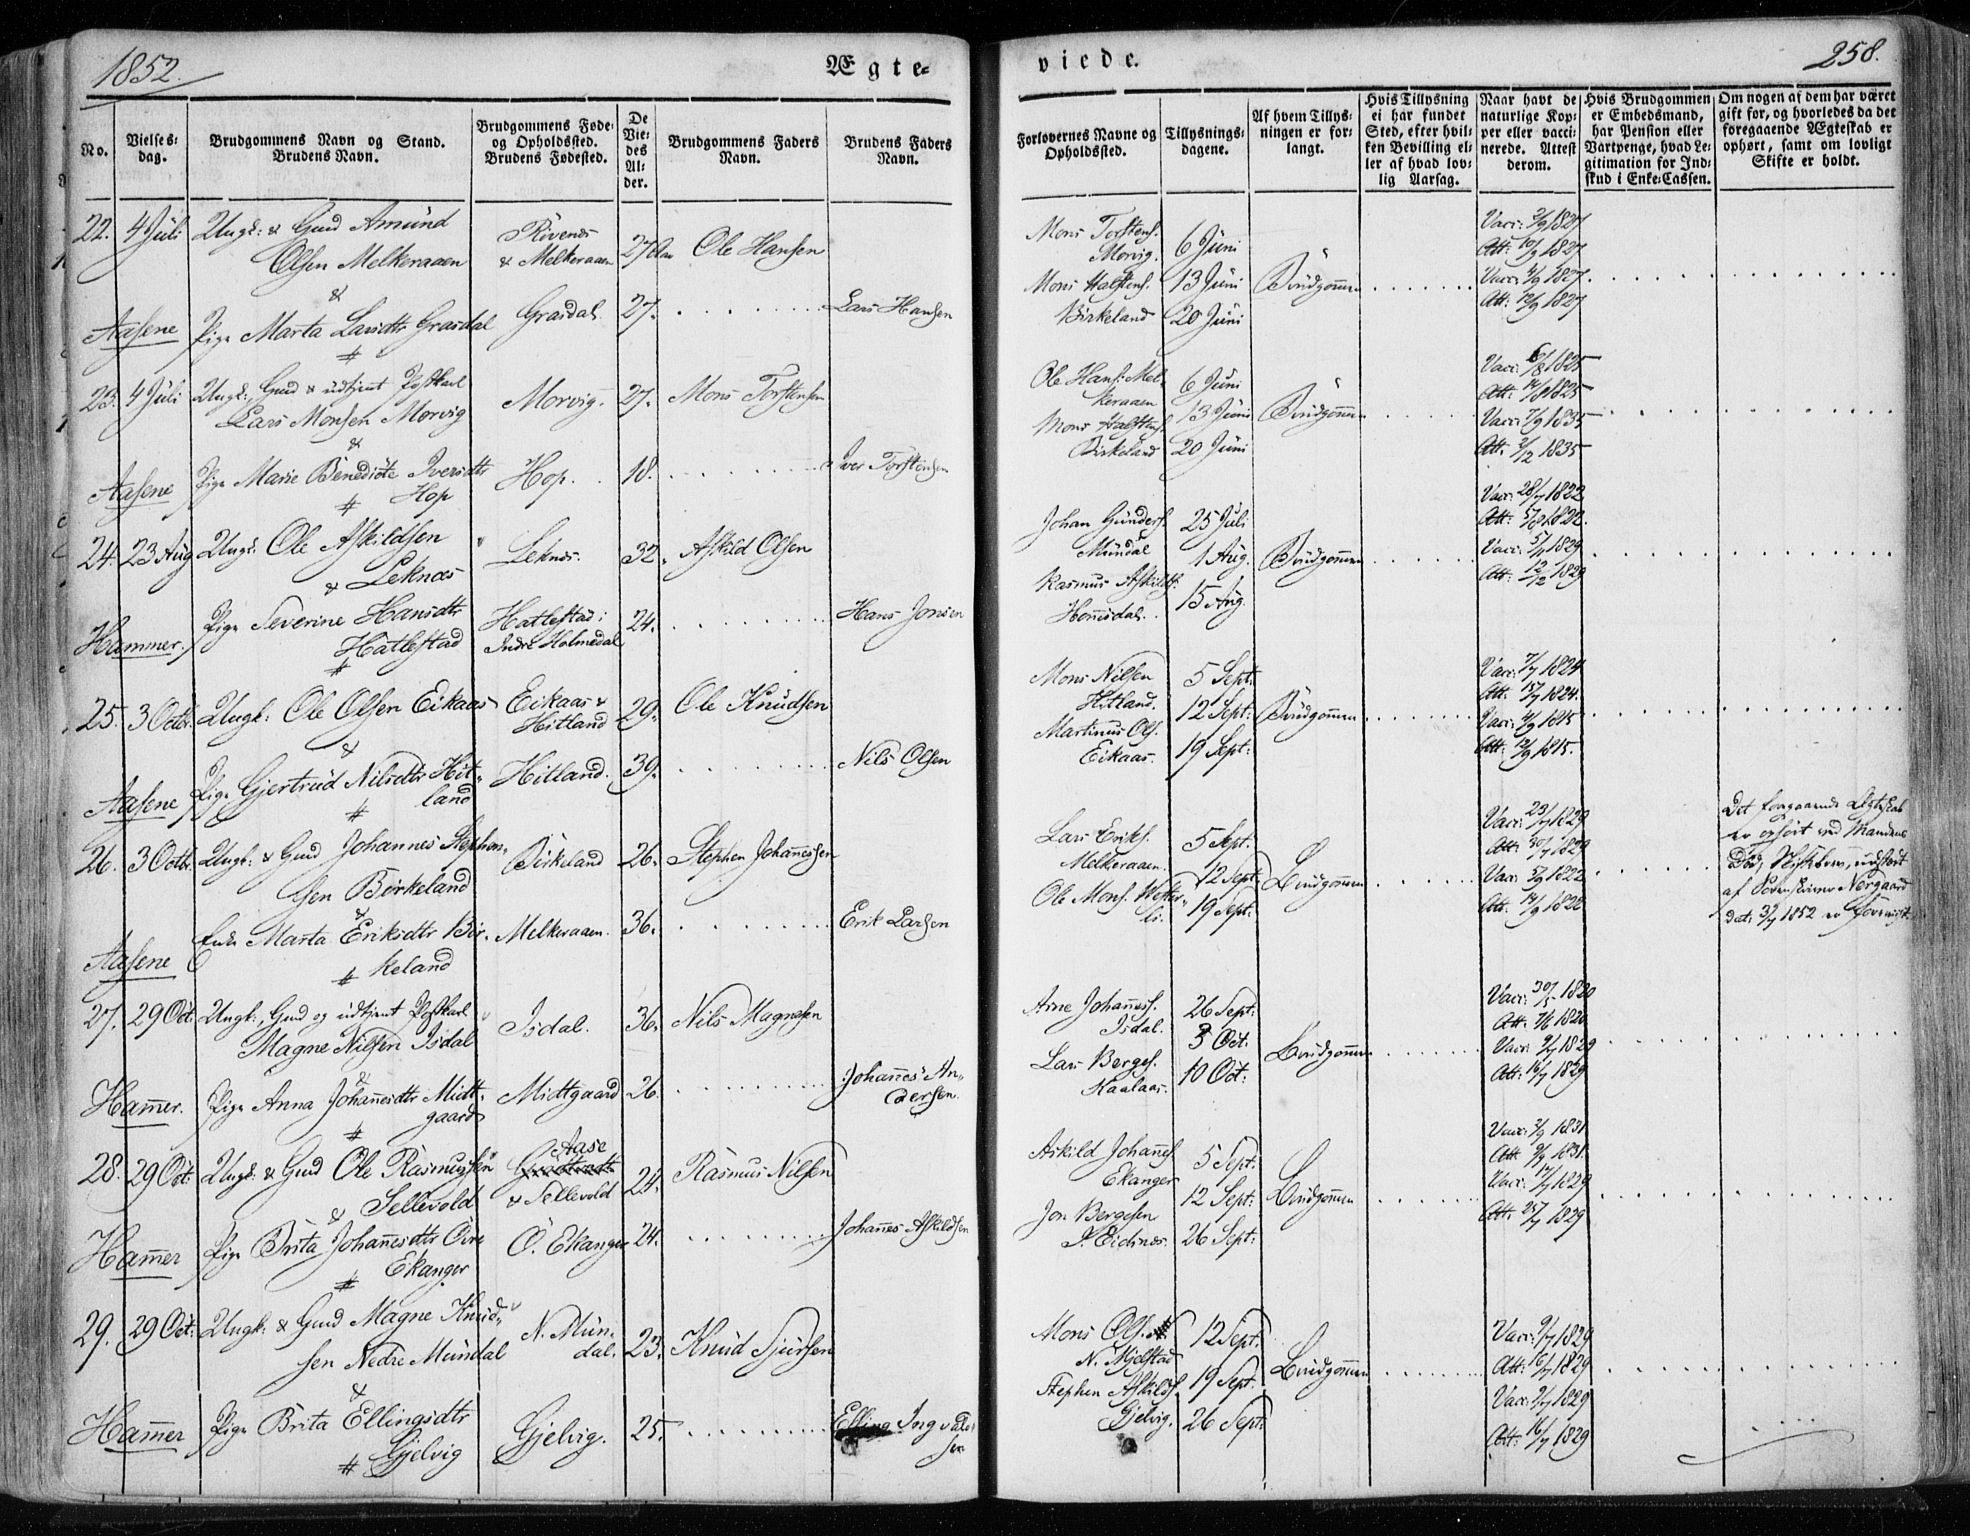 1852.
Ægte-
No.
Vielses-
dag.
Brudgommens Navn og Stand.
Brudens Navn.
Brudgommens Føde-
og Opholdssted.
Brudens Fødested.
De
Vie-
des
Al-
der.
Brudgommens Faders
Navn.
Brudens Faders
Navn.
22. 4 Juli Ungk: & Gmd Amund
Olsen Melkeraaen
Rivenes
& Melkeraaen
27 Aar
Ole Hansen
&
Aasene
Pige Marta Larsdtr Grasdal
Grasdal
27.
Lars Hansen
#
23. 4 Juli Ungk:, Gmd & udtjent
Lars Monsen Morvig
Morvig.
27.
Mons Torstensen
&
Aasene
Pige Marie Benedicte Iversdtr
Hop
Hop.
18.
Iver Torstensen
#
24. 23 Aug Ungk: Ole Askildsen
Leknæs
Leknæs.
32.
Askild Olsen
&
Hammer.
Pige Severine Hansdtr
Hatlestad
Hatlestad i
Indre Holmedal
24.
Hans Jonsen
#
25. 3 Octbr. Ungk: Ole Olsen Eikaas
Eikaas &
Hitland
29.
Ole Knudsen
&
Aasene
Pige Gjertrud Nilsdtr Hit-
land
Hitland.
39.
Nils Olsen
#
26. 3 Octbr. Ungk: & Gmd Johannes Stephen-
sen Birkeland
Birkeland
26.
Stephen Johannessen
&
Aasene
Enke Marta Eriksdtr Bir-
keland
Melkeraaen.
36.
Erik Larsen
#
27. 29 Oct: Ungk:, Gmd og udtjent
Magne Nilsen Isdal
Isdal.
36.
Nils Magnesen
&
Hammer.
Pige Anna Johannesdtr Midt-
gaard
Midtgaard
26.
Johannes An-
dersen.
#
28. 29 Oct: Ungk: & Gmd Ole Rasmussen
Sellevold
Aase
& Sellevold
24.
Rasmus Nilsen
&
Hammer
Pige Brita Johannesdtr Øvre
Ekanger
Ø. Ekanger
24.
Johannes Askildsen
#
29. 29 Oct: Ungk: & Gmd Magne Knud-
sen Nedre Mundal
N. Mun-
dal.
23.
Knud Sjursen
&
Hammer
Pige Brita Ellingsdtr
Gjelvig
Gjelvig.
25.
Elling Ingvald-
sen
#
viede.
258.
Forlovernes Navne og
Opholdssted.
Tillysnings-
dagene.
Af hvem Tillys-
ningen er for-
langt.
Hvis Tillysning
ei har fundet
Sted, efter hvil-
ken Bevilling el-
ler af hvad lov-
lig Aarsag.
Naar havt de
naturlige Kop-
per eller vacci-
nerede. Attest
derom.
Hvis Brudgommen
er Embedsmand,
har Pension eller
Vartpenge, hvad Le-
gitimation for Ind-
skud i Enke-Cassen.
Om nogen af dem har været
gift for, og hvorledes da det
foregaaende Ægteskab er
ophørt, samt om lovligt
Skifte er holdt.
Mons Torstens.
Morvig.
Mons Halstens.
Birkeland
6 Juni
13 Juni
20 Juni
Brudgommen
Vacc: 3/9 1827
Att: 10/9 1827
Vacc: 4/9 1827.
Att: 12/9 1827
Ole Hans. Mel-
keraaen
Mons Halstens.
Birkeland
6 Juni
13 Juni
20 Juni
Brudgommen
Att: 14/9 1825
Vacc: 7/9 1835
Att: 2/12 1835
Johan Gunders.
Mundal
Rasmus Askilds.
Honnsdal.
25 Juli
1 Aug.
15 Aug.
Brudgommen
Vacc: 28/7 1822
Att: 5/8 1822.
Vacc: 5/7 1829
Att: 12/12 1829
Mons Nilsen
Hitland.
Martinus Ols.
Eikaas.
5 Sept:
12 Sept:
19 Sept:
Brudgommen
Vacc: 7/7 1824
Att: 15/7 1824.
Vacc: 4/9 1815
Att: 12/9 1815.
Lars Eriks.
Melkeraaen.
Ole Mons. Wester-
li.
5 Sept:
12 Sept:
19 Sept:
Brudgommen
Vacc: 23/7 1829
Att: 30/7 1829
Vacc: 5/9 1822
Att: 14/9 1822
Det foregaaende Ægteskab
er ophørt ved Mandens
Død, Skiftebrev, udstedt
af Sorenskriver Nørgaard
dat: 3/7 1852 er forevist.
Arne Johanness.
Isdal.
Lars Berges.
Kaalaas.
26 Sept:
3 Oct:
10 Oct:
Brudgommen
Vacc: 30/5 1820
Att: 7/6 1820
Vacc: 9/7 1829
Att: 16/7 1829
Askild Johannes.
Ekanger
Jon Bergesen
I. Eidnes.
5 Sept:
12 Sept:
26 Sept:
Brudgommen
Vacc: 2/9 1831
Att: 9/9 1831.
Vacc: 17/7 1829
Att: 25/7 1829
Mons Ols.
N. Mjelstad
Stephen Askilds.
Gjelvig.
12 Sept:
19 Sept.
26 Sept:
Brudgommen
Vacc: 9/7 1829
Att: 16/7 1829
Vacc: 9/7 1829
Att: 16/7 1829